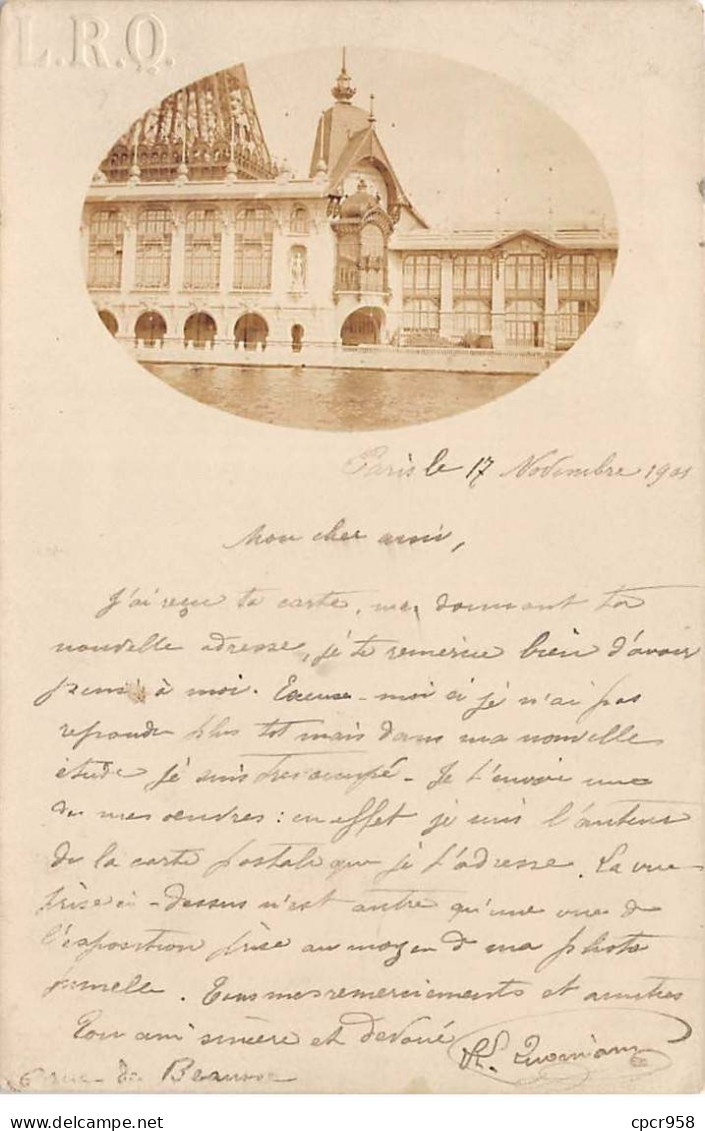 L.R.Q.
Paris le 17 Novembre 1901
Mon cher ami,
J'ai reçu ta carte, me donnant ta
nouvelle adresse, je te remercie bien d'avoir
pensé à moi. Excuse-moi si je n'ai pas
repondu plus tot mais dans ma nouvelle
étude je suis tres occupé - Je t'envoie une
de mes oeuvres : en effet je suis l'auteur
de la carte postale que je t'adresse. La vue
prise ci-dessus n'est autre qu'une vue de
l'exposition prise au moyen de ma photo
jumelle. Tous mes remerciements et amitiés
Ton ami sincère et dévoué
rue de Beauvoe
cpcr958